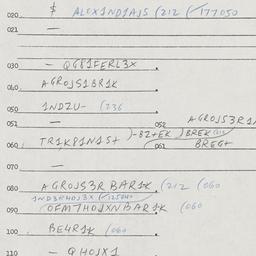 020 $ ALCX1ND1AJS (212 (177050
021 —
030 — QG81FERL3X .
040 AGROJS1BR1K
050 1NDZU- (236 .
051 — 052 AGROJS3R1
060 TR1K81N1S+ )-8Z+EK )BREK
061 BREG+
070 —
080 AGROJS3R BAR1K (212 (060
090 OFM7HOJXNBAR1K (060
100 BE4R1K (060 .
110 — QHOJX1